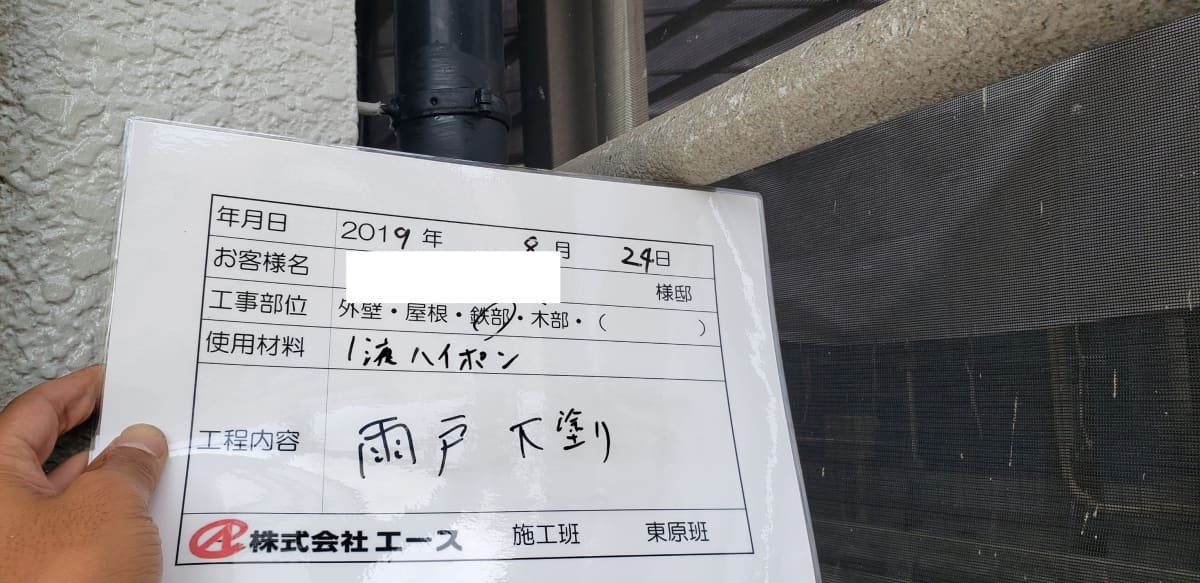 年月日 2019年 8月 24日
お客様名 様邸
工事部位 外壁・屋根・鉄部・木部・( )
使用材料 1液ハイポン
工程内容 雨戸 下塗り
株式会社エース 施工班 東原班